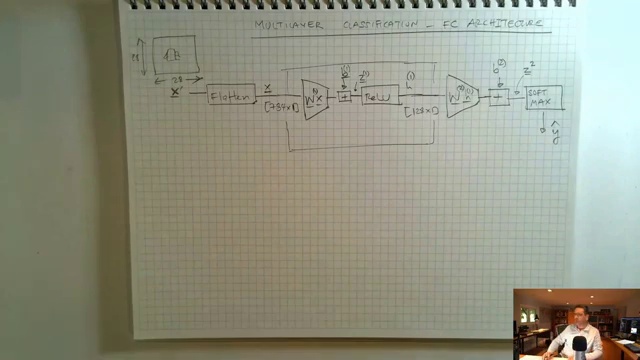 MULTILAYER CLASSIFICATION - FC ARCHITECTURE
28
28
x'
Flatten
x
[784x1]
W(1) x
b(1)
+
z(1)
ReLU
h(1)
[128x1]
W(2) h(1)
b(2)
+
z2
SOFT
MAX
ŷ